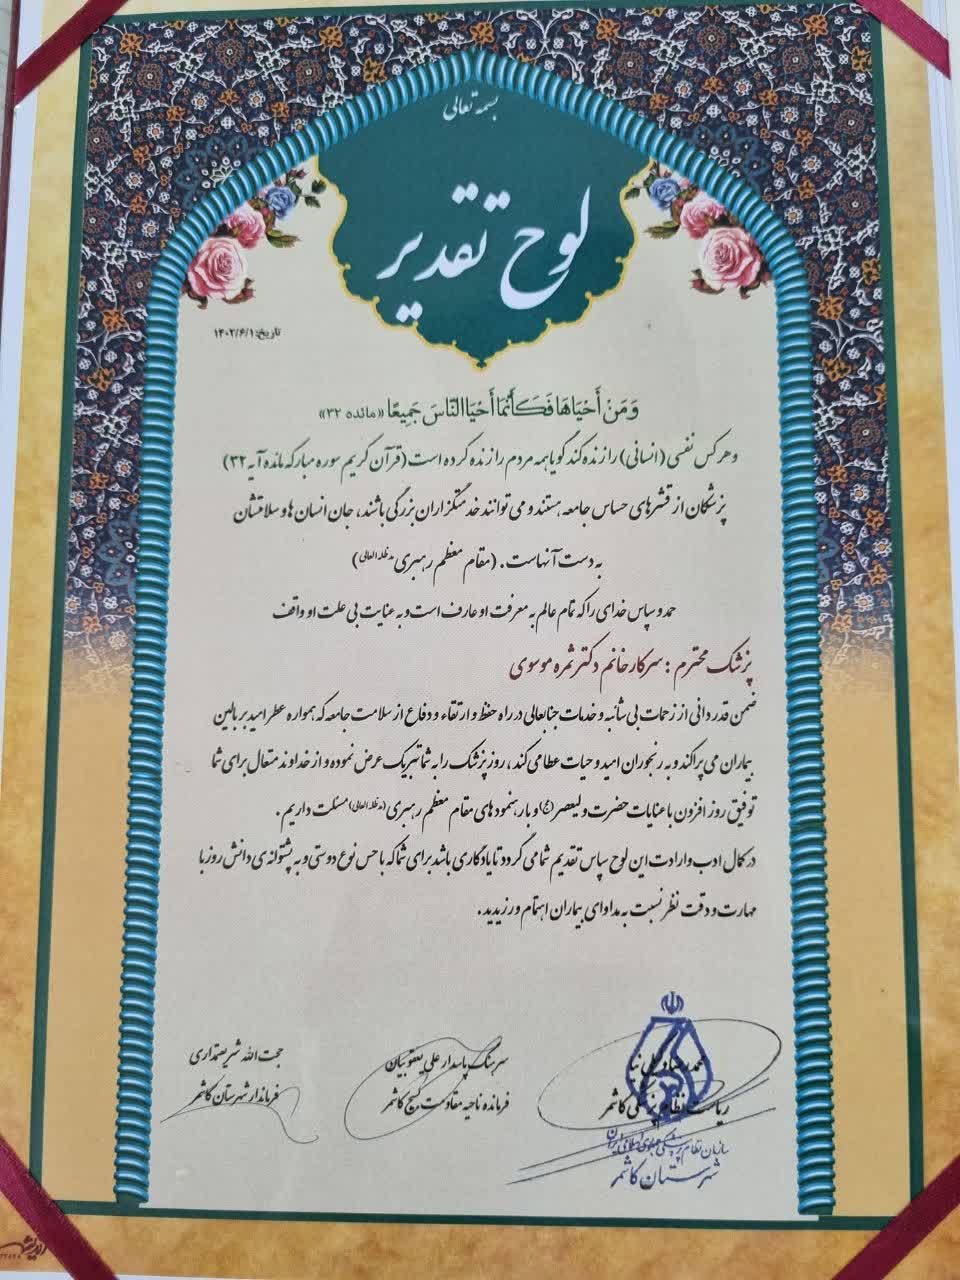 بسمه تعالی
لوح تقدیر
تاریخ: ۱۴۰۲/۶/۱
وَمَنْ أَحْيَاهَا فَكَأَنَّمَا أَحْيَا النَّاسَ جَمِيعًا «مائده ۳۲»
و هر کس نفسی (انسانی) را زنده کند گویا همه مردم را زنده کرده است (قرآن کریم سوره مبارکه مائده آیه ۳۲)
پزشکان از قشرهای حساس جامعه هستند و می توانند خدمتگزاران بزرگی باشند، جان انسان ها و سلامتشان
به دست آنهاست. (مقام معظم رهبری مدظله العالی)
حمد و سپاس خدای را که تمام عالم به معرفت او عارف است و به عنایت بی علت او واقف
پزشک محترم : سرکار خانم دکتر ثمره موسوی
ضمن قدردانی از زحمات بی شائبه و خدمات جنابعالی در راه حفظ و ارتقاء و دفاع از سلامت جامعه که همواره عطر امید بر بالین
بیماران می پراکند و به رنجوران امید و حیات عطا می کند، روز پزشک را به شما تبریک عرض نموده و از خداوند متعال برای شما
توفیق روز افزون با عنایات حضرت ولیعصر (عج) و با رهنمودهای مقام معظم رهبری (مدظله العالی) مسئلت داریم.
در کمال ادب و ارادت این لوح سپاس تقدیم شما می گردد تا یادگاری باشد برای شما که با حس نوع دوستی و به پشتوانه ی دانش روز با
مهارت و دقت نظر نسبت به مداوای بیماران اهتمام ورزیدید.
محمدرضا نیا
ریاست نظام پزشکی کاشمر
سازمان نظام پزشکی جمهوری اسلامی ایران
شهرستان کاشمر
سرهنگ پاسدار علی یعقوبیان
فرمانده ناحیه مقاومت بسیج کاشمر
حجت الله شریعتمداری
فرماندار شهرستان کاشمر